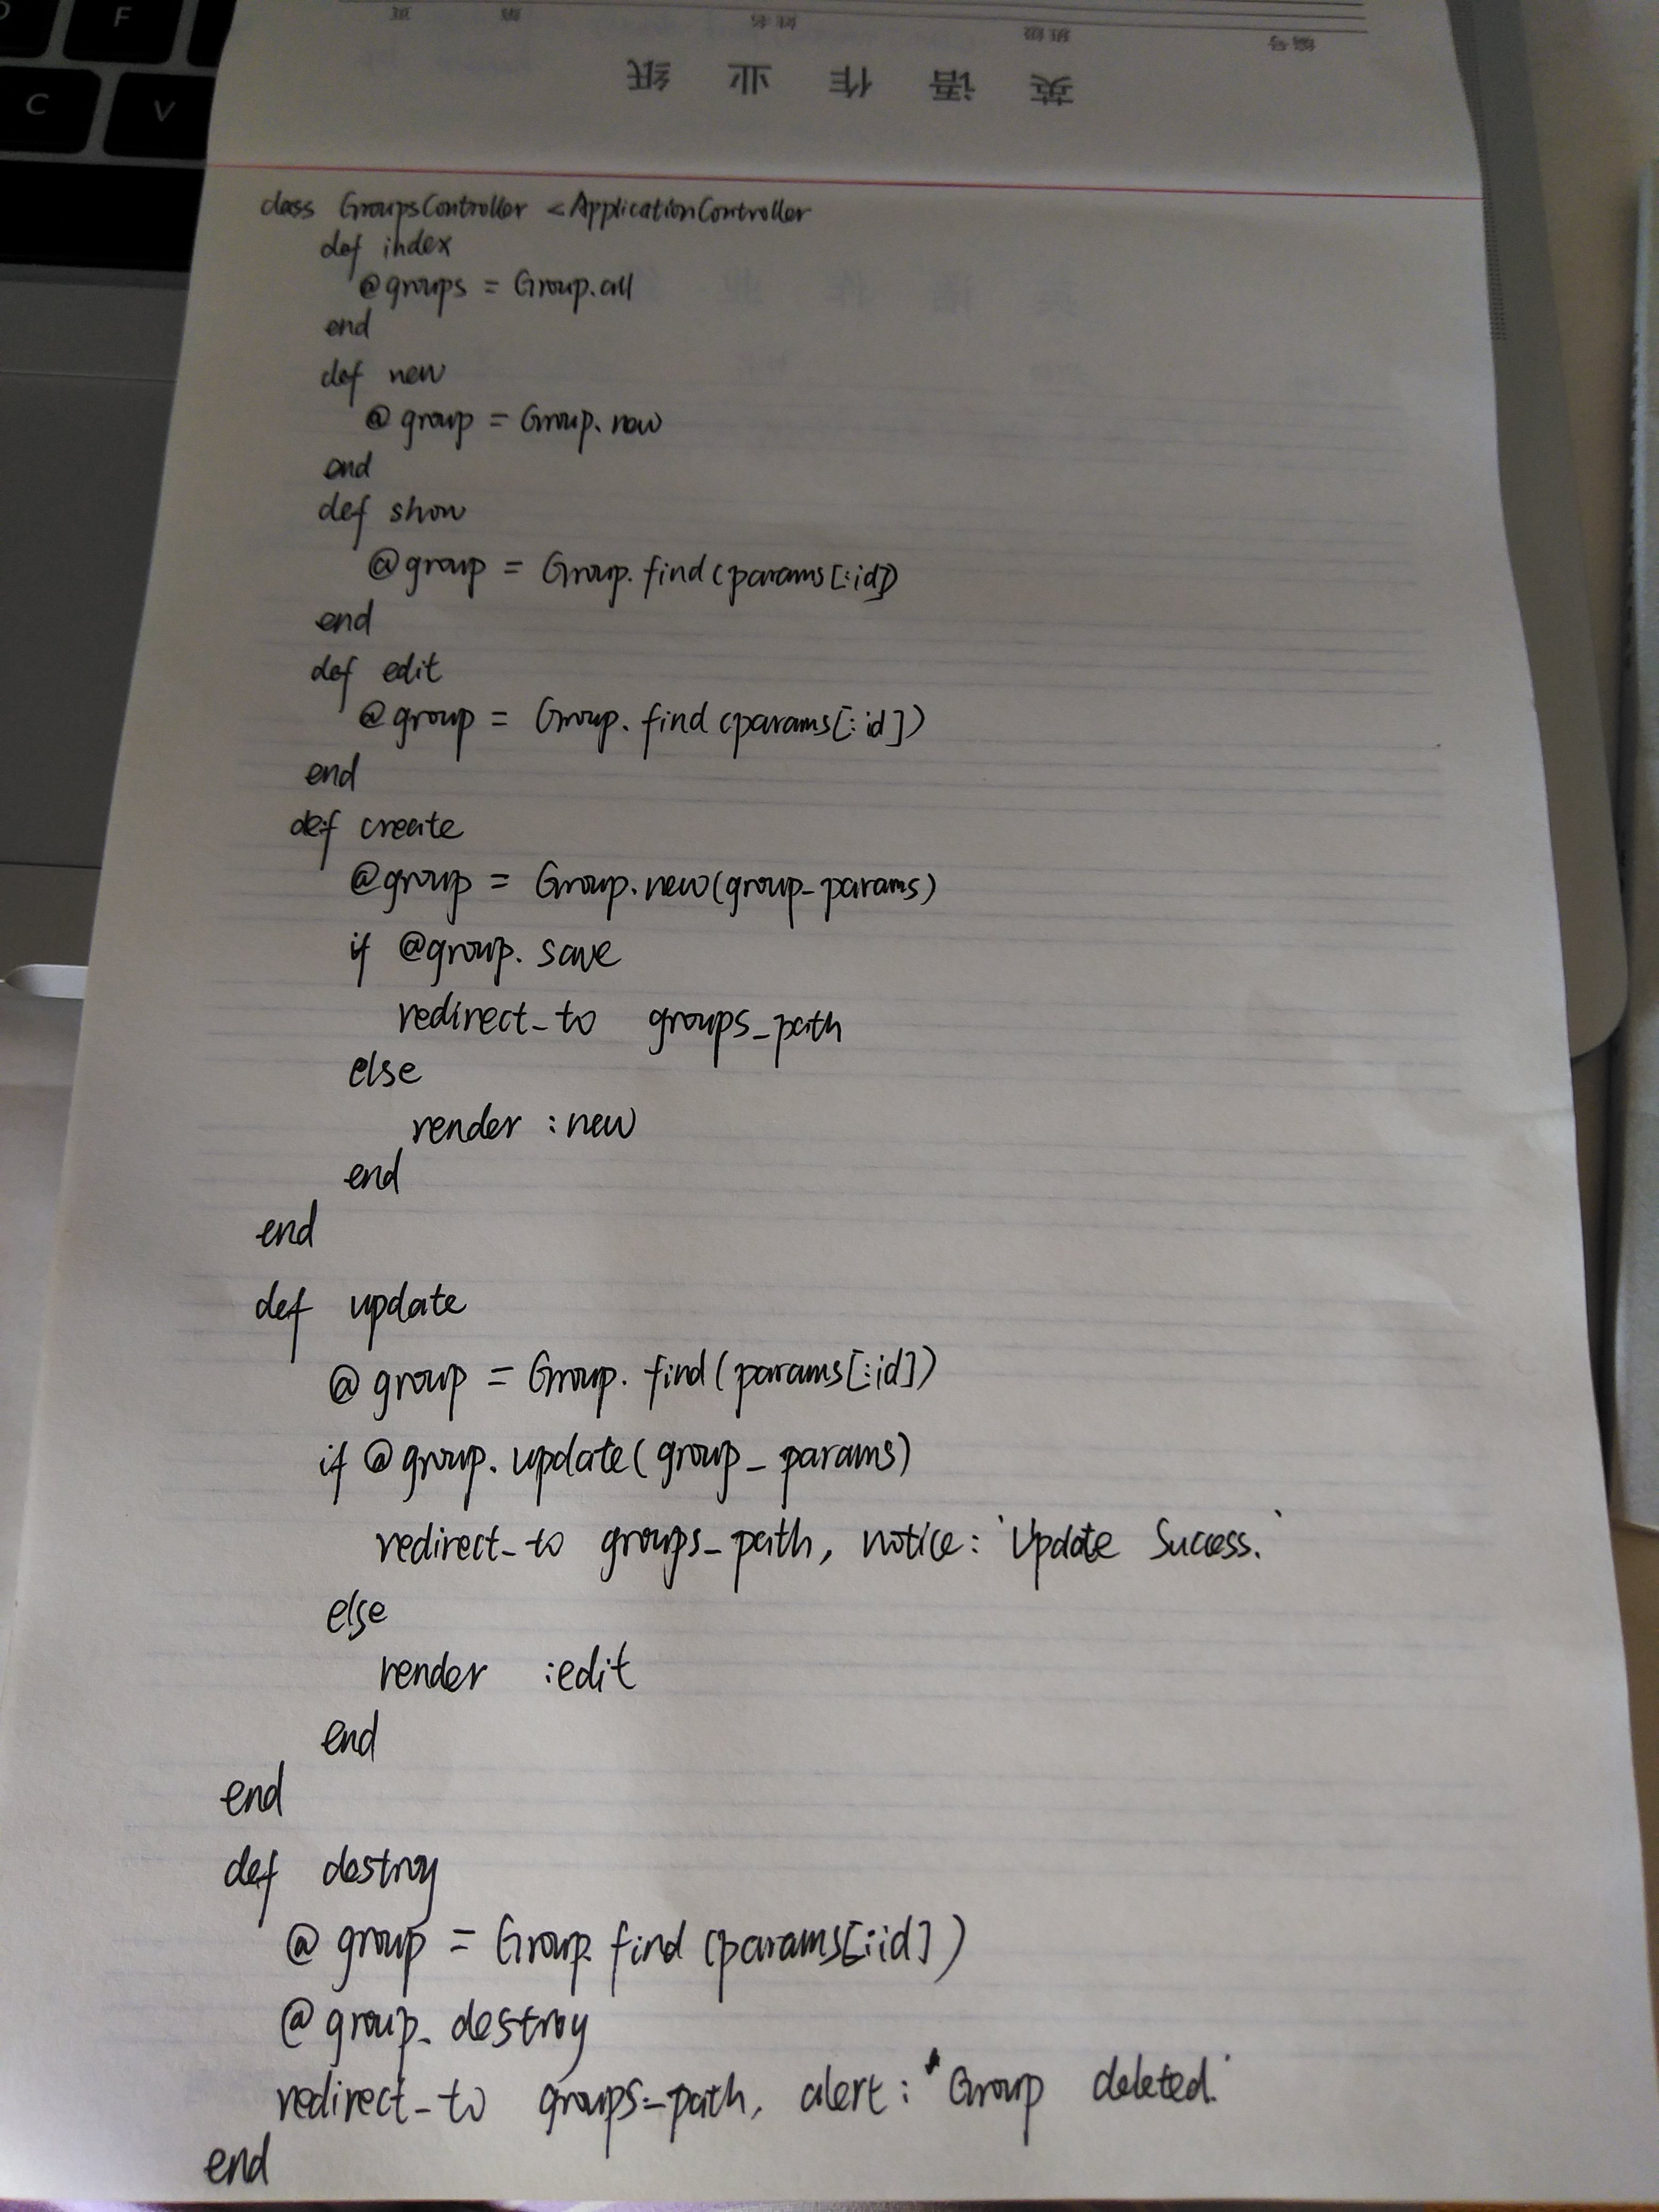 编号 班级 姓名 第 页
英语作业纸
class GroupsController < ApplicationController
def index
@groups = Group.all
end
def new
@group = Group.new
end
def show
@group = Group.find(params[:id])
end
def edit
@group = Group.find(params[:id])
end
def create
@group = Group.new(group_params)
if @group.save
redirect_to groups_path
else
render :new
end
end
def update
@group = Group.find(params[:id])
if @group.update(group_params)
redirect_to groups_path, notice: 'Update Success.'
else
render :edit
end
end
def destroy
@group = Group find(params[:id])
@group_destroy
redirect_to groups_path, alert: 'Group deleted.'
end
F
C
V